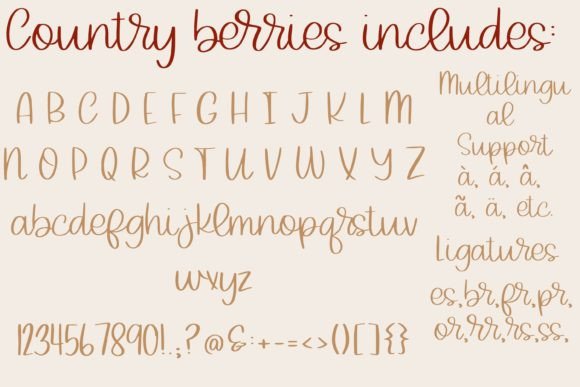 Country berries includes:
A B C D E F G H I J K L M
N O P Q R S T U V W X Y Z
abcdefghijklmnopqrstuv
wxyz
1234567890!.,;?@&:+-=<>()[]{}
Multilingu
al
Support
à, á, â,
ã, ä, etc.
Ligatures
es,br,fr,pr,
or,rr,rs,ss,